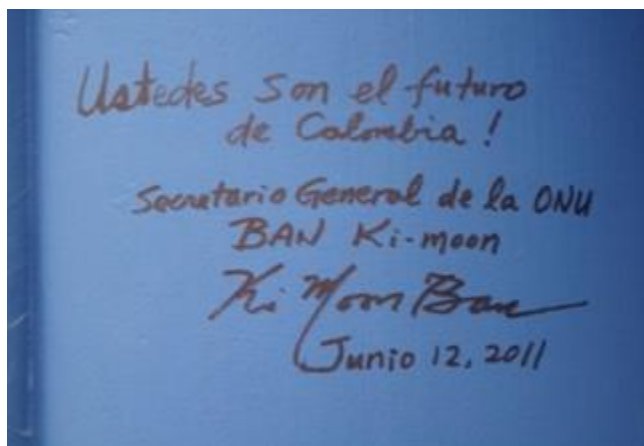 Ustedes son el futuro
de Colombia!
Secretario General de la ONU
BAN Ki-moon
Ki Moon Ban
Junio 12, 2011